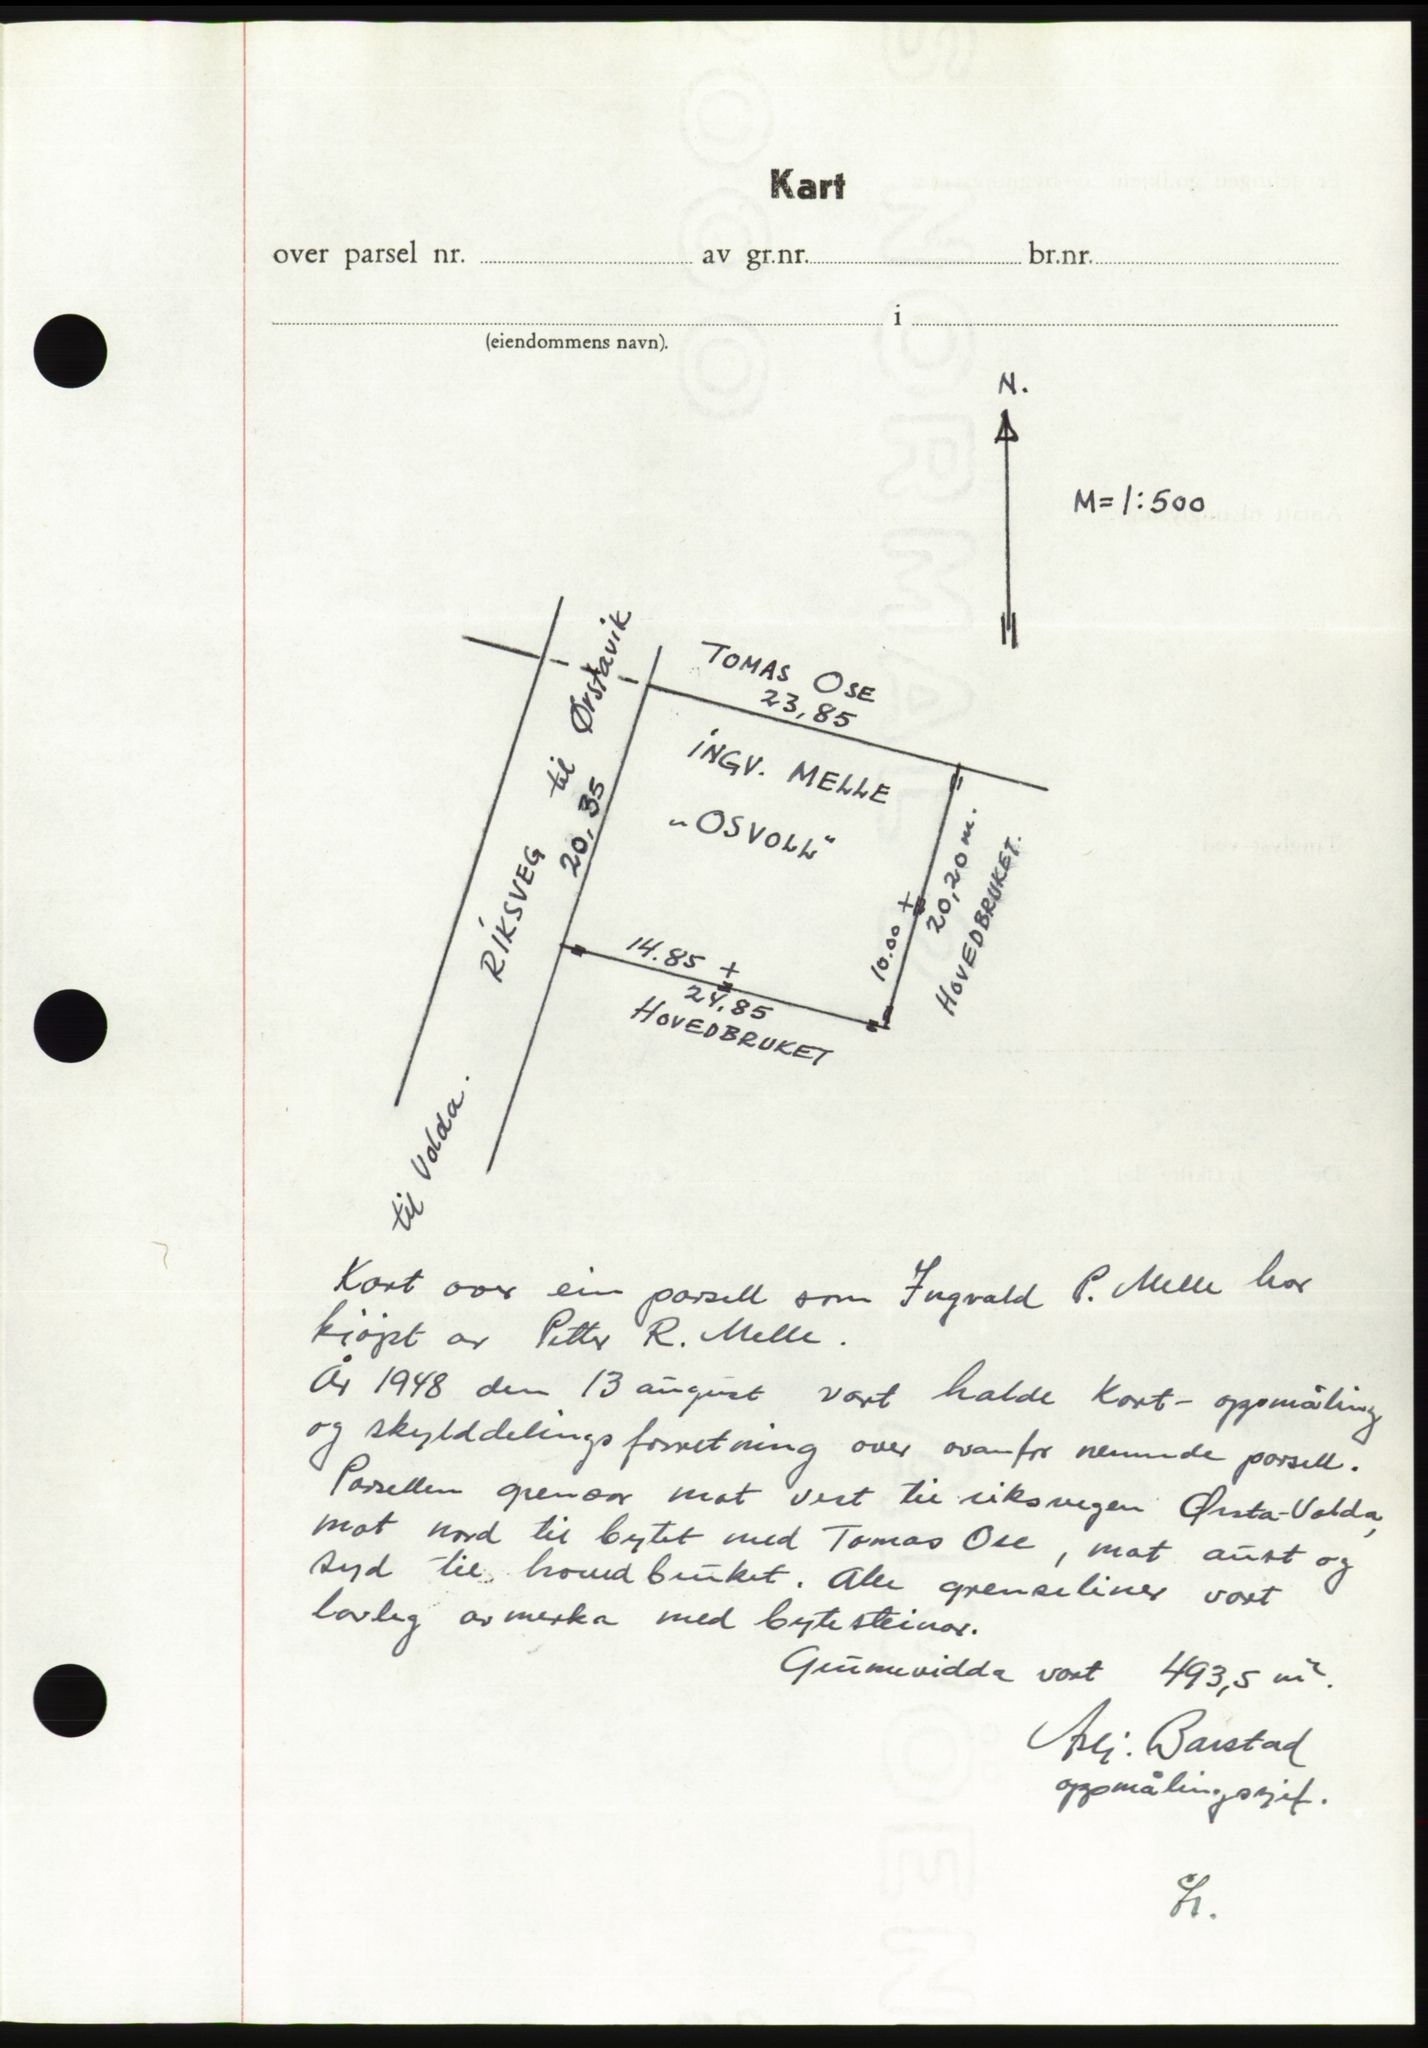 Kart
over parsel nr. av gr.nr. br.nr.
i
(eiendommens navn).
N.
M=1:500
TOMAS OSE
23,85
RIKSVEG til Ørstavik
20,35
INGV. MELLE
„OSVOLL“
20,20 m.
HOVEDBRUKET.
10.00
14.85
24,85
HOVEDBRUKET
til Volda.
Kart over ein parsell som Ingvald P. Melle har
kjöpt av Petter R. Melle.
År 1948 den 13 august vart halde kart- oppmåling
og skylddelingsforretning over ovanfor nemnde parsell.
Parsellen grensar mot vest til riksvegen Ørsta-Volda,
mot nord til bytet med Tomas Ose, mot aust og
syd til hovedbruket. Alle grenseliner vart
lovleg avmerka med bytesteinar.
Grunnevidda vart 493,5 m².
Barstad
oppmålingssjef.